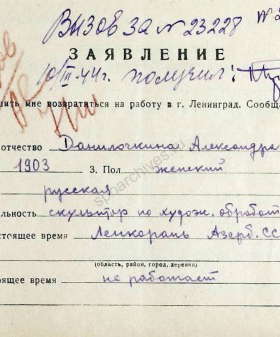 Вызов за № 23228 №
ЗАЯВЛЕНИЕ
10/III 44 г. получил:
ить мне возвратиться на работу в г. Ленинград. Сообща
отчество Данилочкина Александра
1903 3. Пол женский
русская
льность скульптор по худож. обработ
стоящее время Ленкорань Азерб. СС
(область, район, город, деревня)
оящее время не работает
spbarchives.ru